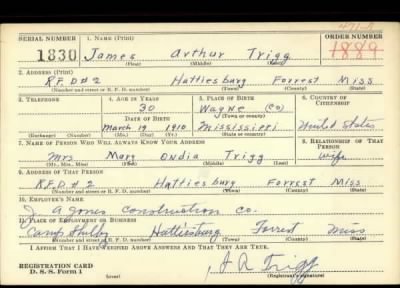 SERIAL NUMBER 1. NAME (Print) ORDER NUMBER
1830 James Arthur Trigg 1889
(First) (Middle) (Last)
2. ADDRESS (Print)
R.F.D. # 2 Hattiesburg Forrest Miss
(Number and street or R. F. D. number) (Town) (County) (State)
3. TELEPHONE 4. AGE IN YEARS 5. PLACE OF BIRTH 6. COUNTRY OF CITIZENSHIP
30 Wayne (Co)
DATE OF BIRTH (Town or county)
March 19 1910 Mississippi United States
(Exchange) (Number) (Mo.) (Day) (Yr.) (State or country)
7. NAME OF PERSON WHO WILL ALWAYS KNOW YOUR ADDRESS 8. RELATIONSHIP OF THAT PERSON
Mrs Mary Ovdia Trigg wife
(Mr., Mrs., Miss) (First) (Middle) (Last)
9. ADDRESS OF THAT PERSON
R.F.D. # 2 Hattiesburg Forrest Miss
(Number and street or R. F. D. number) (Town) (County) (State)
10. EMPLOYER'S NAME
J. A Jones Construction Co.
11. PLACE OF EMPLOYMENT OR BUSINESS
Camp Shelby Hattiesburg Forrest Miss
(Number and street or R. F. D. number) (Town) (County) (State)
I AFFIRM THAT I HAVE VERIFIED ABOVE ANSWERS AND THAT THEY ARE TRUE.
REGISTRATION CARD
D. S. S. Form 1 (over) J A Trigg
(Registrant's signature)